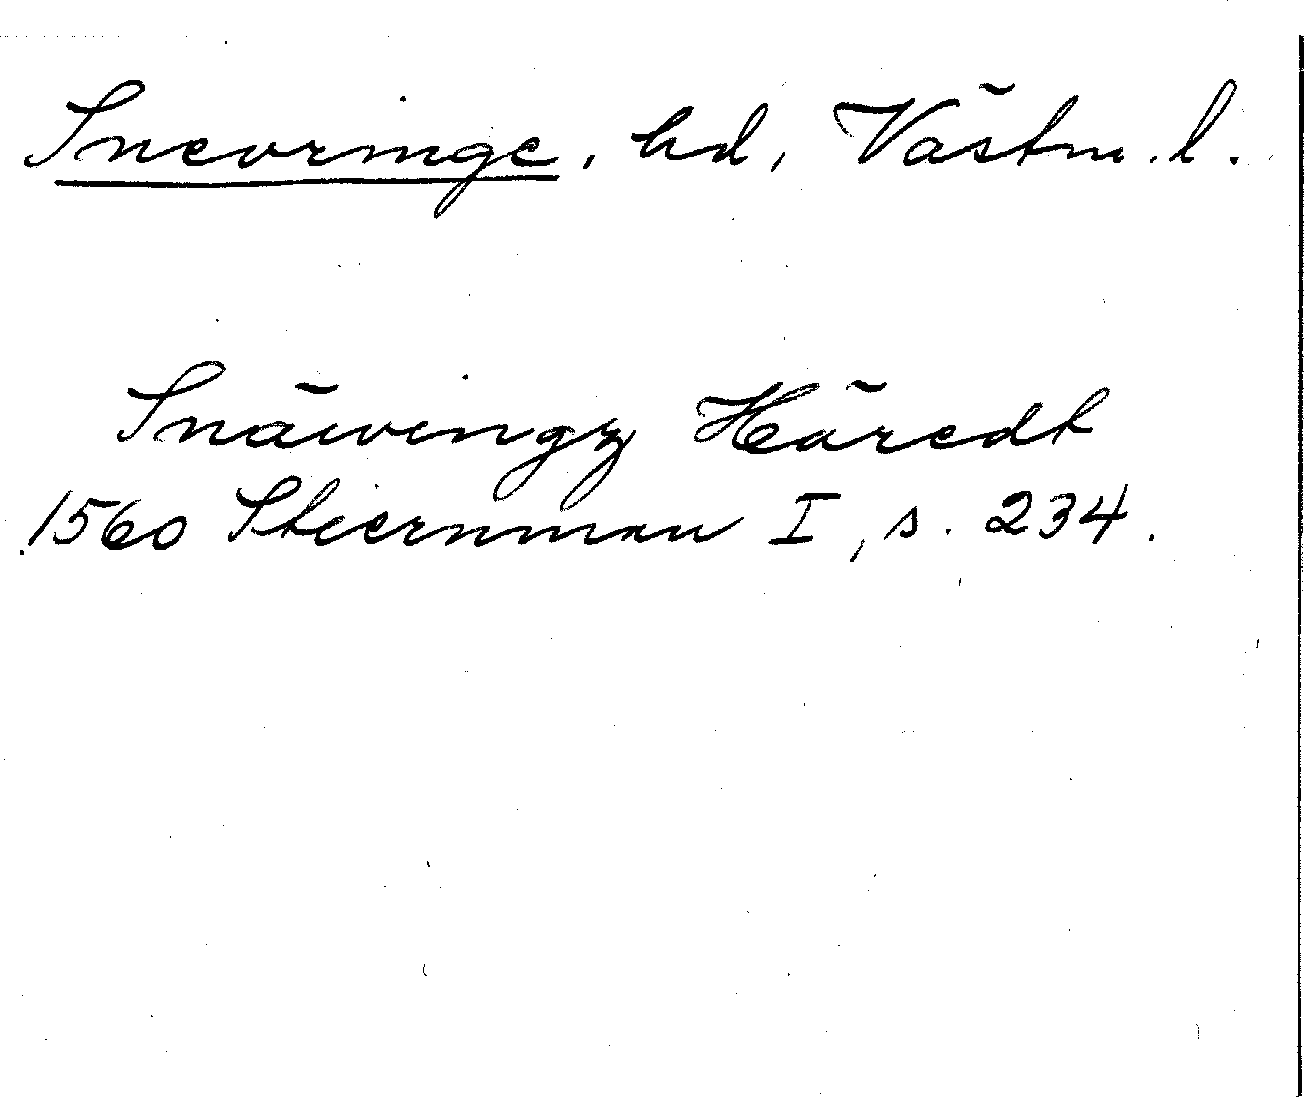 Snevringe, hd, Västm. l.
Snäwingz Häredt
1560 Stiernman I, s. 234.